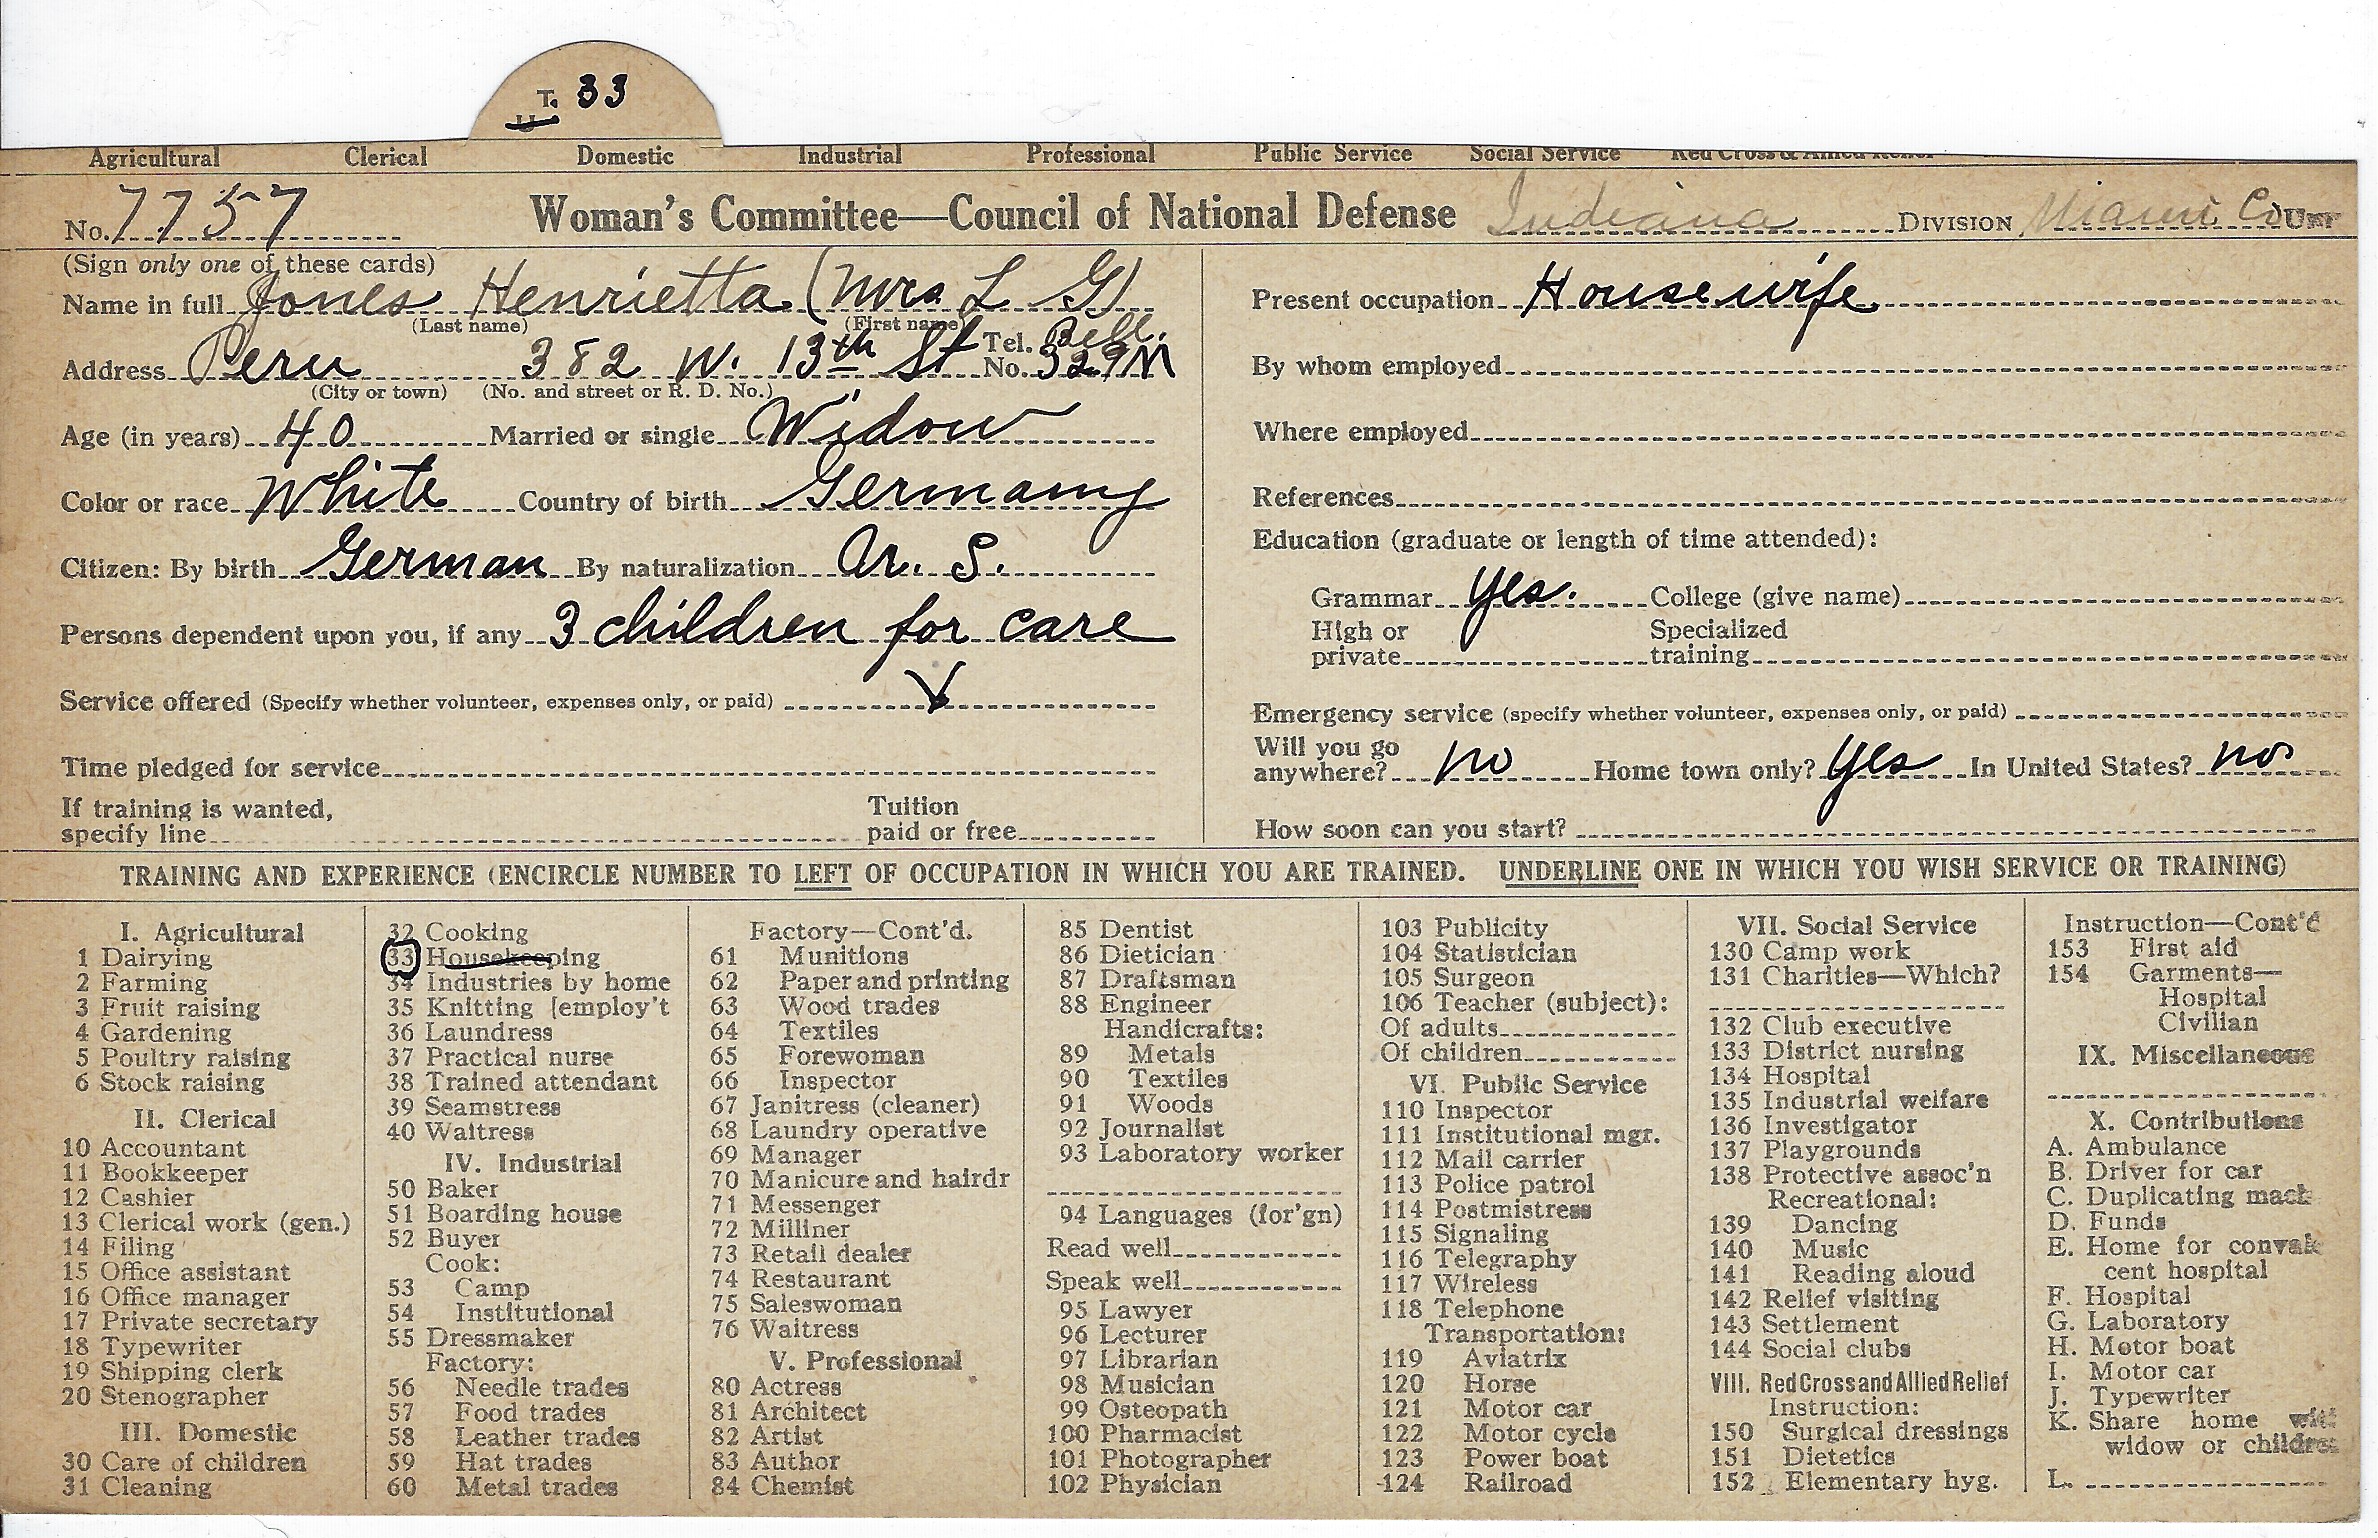 T. 33
U
Agricultural Clerical Domestic Industrial Professional Public Service Social Service Red Cross & Allied Relief
No. 7757 Woman's Committee—Council of National Defense Indiana DIVISION Miami Co UNIT
(Sign only one of these cards)
Name in full Jones Henrietta (Mrs L G)
(Last name) (First name)
Address Peru 382 W. 13th St Tel. No. Bell. 329M
(City or town) (No. and street or R. D. No.)
Age (in years) 40 Married or single Widow
Color or race White Country of birth Germany
Citizen: By birth German By naturalization U. S.
Persons dependent upon you, if any 3 children for care
Service offered (Specify whether volunteer, expenses only, or paid) V
Time pledged for service
If training is wanted,
specify line
Tuition
paid or free
Present occupation Housewife
By whom employed
Where employed
References
Education (graduate or length of time attended):
Grammar Yes. College (give name)
High or
private
Specialized
training
Emergency service (specify whether volunteer, expenses only, or paid)
Will you go
anywhere? no Home town only? yes In United States? no
How soon can you start?
TRAINING AND EXPERIENCE (ENCIRCLE NUMBER TO LEFT OF OCCUPATION IN WHICH YOU ARE TRAINED. UNDERLINE ONE IN WHICH YOU WISH SERVICE OR TRAINING)
I. Agricultural
1 Dairying
2 Farming
3 Fruit raising
4 Gardening
5 Poultry raising
6 Stock raising
II. Clerical
10 Accountant
11 Bookkeeper
12 Cashier
13 Clerical work (gen.)
14 Filing
15 Office assistant
16 Office manager
17 Private secretary
18 Typewriter
19 Shipping clerk
20 Stenographer
III. Domestic
30 Care of children
31 Cleaning
32 Cooking
33 Housekeeping
34 Industries by home
35 Knitting [employ't
36 Laundress
37 Practical nurse
38 Trained attendant
39 Seamstress
40 Waitress
IV. Industrial
50 Baker
51 Boarding house
52 Buyer
Cook:
53 Camp
54 Institutional
55 Dressmaker
Factory:
56 Needle trades
57 Food trades
58 Leather trades
59 Hat trades
60 Metal trades
Factory—Cont'd.
61 Munitions
62 Paper and printing
63 Wood trades
64 Textiles
65 Forewoman
66 Inspector
67 Janitress (cleaner)
68 Laundry operative
69 Manager
70 Manicure and hairdr
71 Messenger
72 Milliner
73 Retail dealer
74 Restaurant
75 Saleswoman
76 Waitress
V. Professional
80 Actress
81 Architect
82 Artist
83 Author
84 Chemist
85 Dentist
86 Dietician
87 Draftsman
88 Engineer
Handicrafts:
89 Metals
90 Textiles
91 Woods
92 Journalist
93 Laboratory worker
94 Languages (for'gn)
Read well
Speak well
95 Lawyer
96 Lecturer
97 Librarian
98 Musician
99 Osteopath
100 Pharmacist
101 Photographer
102 Physician
103 Publicity
104 Statistician
105 Surgeon
106 Teacher (subject):
Of adults
Of children
VI. Public Service
110 Inspector
111 Institutional mgr.
112 Mail carrier
113 Police patrol
114 Postmistress
115 Signaling
116 Telegraphy
117 Wireless
118 Telephone
Transportation:
119 Aviatrix
120 Horse
121 Motor car
122 Motor cycle
123 Power boat
124 Railroad
VII. Social Service
130 Camp work
131 Charities—Which?
132 Club executive
133 District nursing
134 Hospital
135 Industrial welfare
136 Investigator
137 Playgrounds
138 Protective assoc'n
Recreational:
139 Dancing
140 Music
141 Reading aloud
142 Relief visiting
143 Settlement
144 Social clubs
VIII. Red Cross and Allied Relief
Instruction:
150 Surgical dressings
151 Dietetics
152 Elementary hyg.
Instruction—Cont'd
153 First aid
154 Garments—
Hospital
Civilian
IX. Miscellaneous
X. Contributions
A. Ambulance
B. Driver for car
C. Duplicating mach
D. Funds
E. Home for convales
cent hospital
F. Hospital
G. Laboratory
H. Motor boat
I. Motor car
J. Typewriter
K. Share home with
widow or children
L.